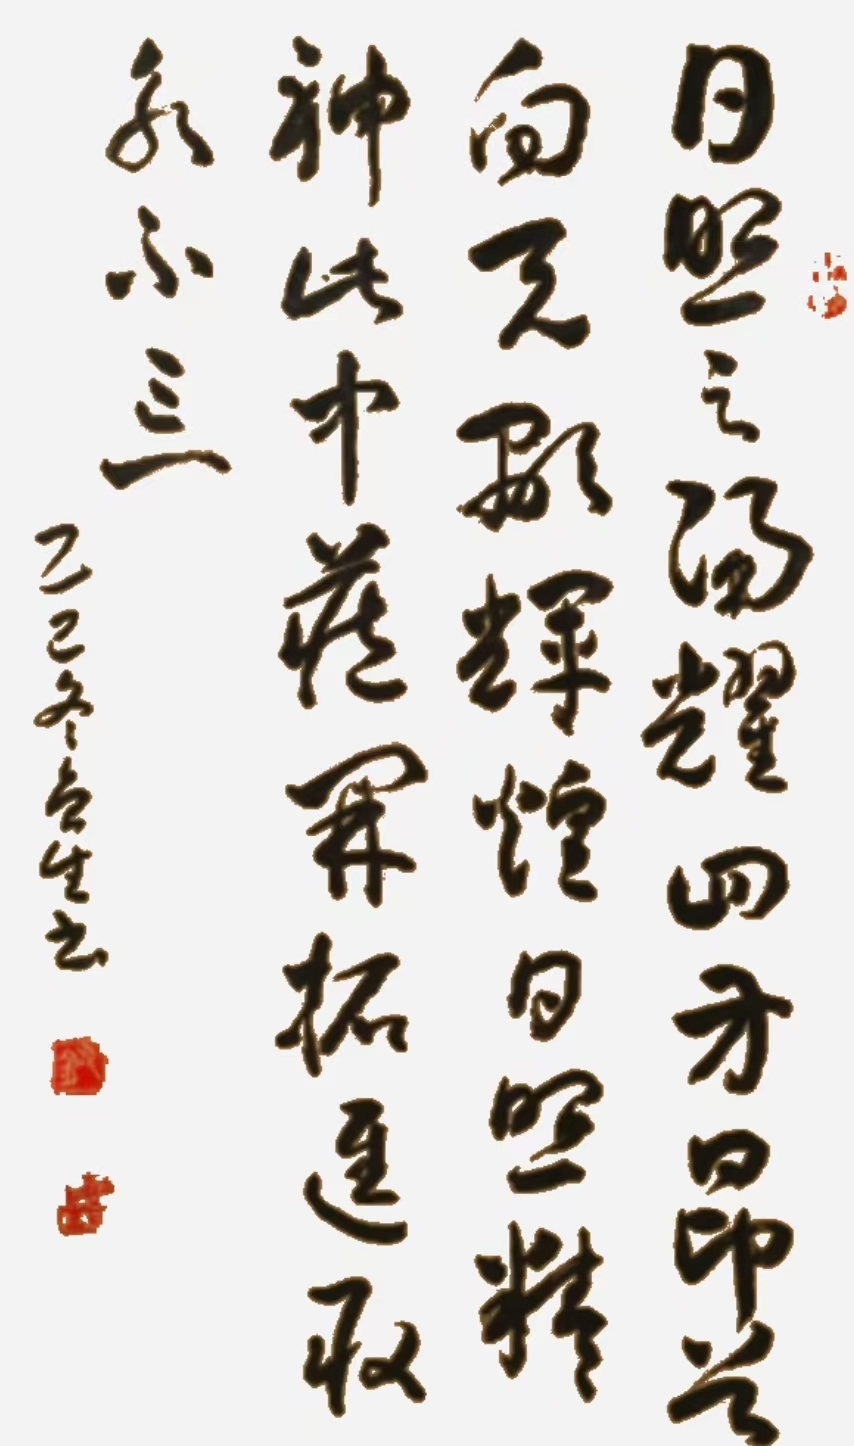 日照之陽耀四方昂首
向天顯輝煌日照精
神此中藏開拓進取
永不三
乙巳冬生书